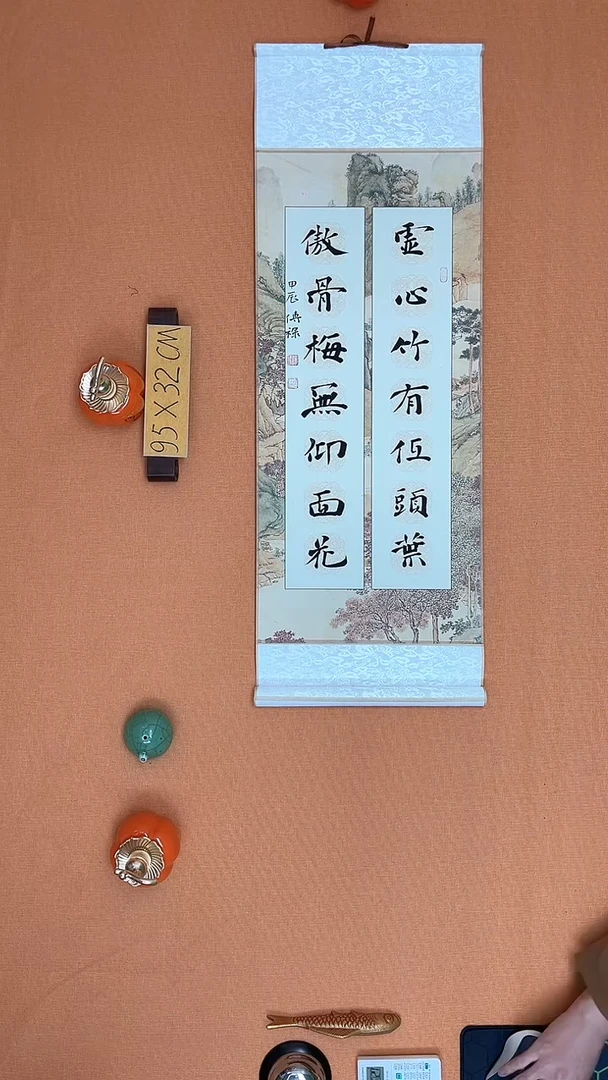 虚心竹有低頭葉
傲骨梅無仰面花
甲辰
95 X 32 CM